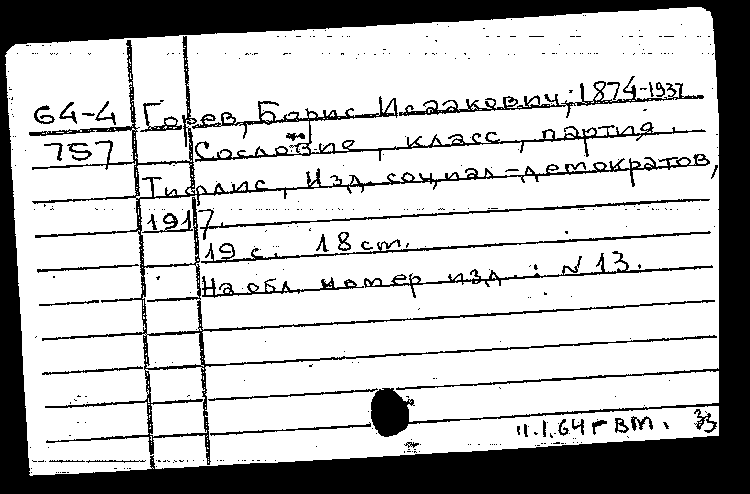 64-4 Горев, Борис Исаакович, 1874-1937
757 Сословие, класс, партия.
Тифлис, Изд. социал-демократов,
1917.
19 с. 18 cm.
На обл. номер изд.: N 13.
11.1.64 г вт.